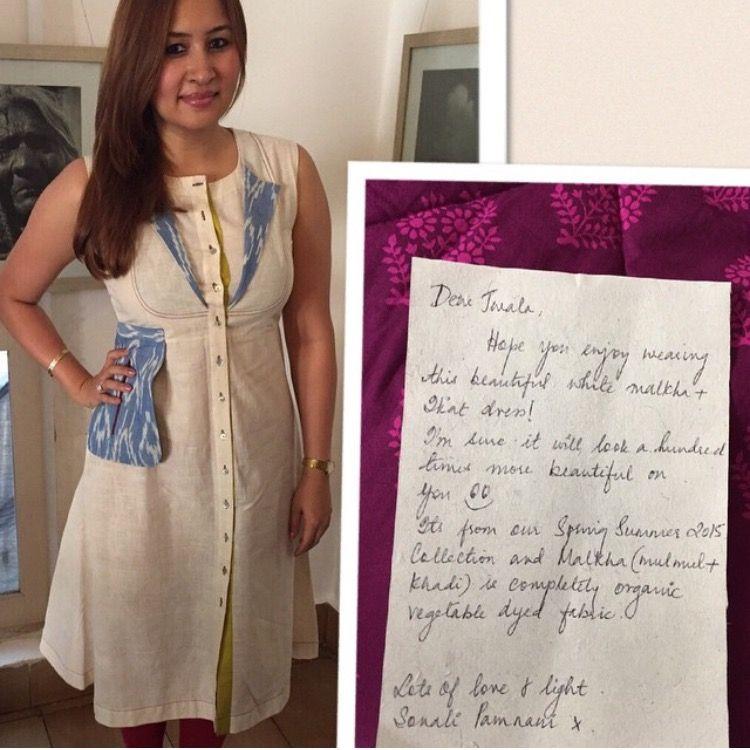 Dear Jwala,
Hope you enjoy wearing
this beautiful white malkha +
Ikat dress!
I'm sure it will look a hundred
times more beautiful on
you
Its from our Spring Summer 2015
Collection and Malkha (mulmul +
khadi) is completely organic
vegetable dyed fabric.
Lots of love & light.
Sonali Pamnani x